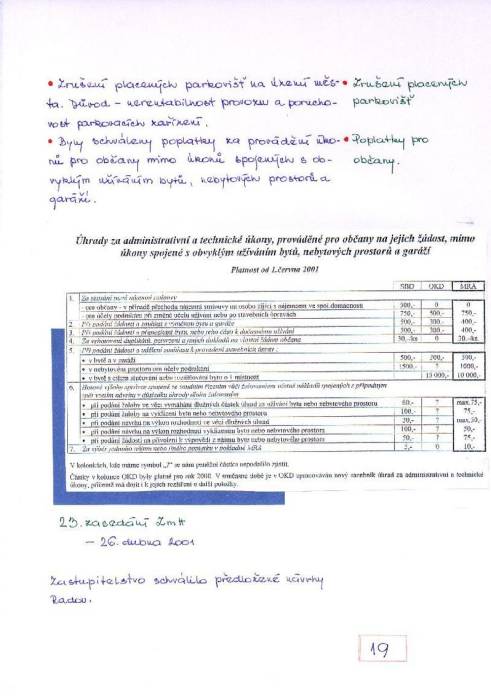 • Zrušení placených parkovišť na území měs-
ta. Důvod – nerentabilnost provozu a porucho-
vost parkovacích zařízení.
• Zrušení placených
parkovišť
• Byly schváleny poplatky za provádění úko-
nů pro občany mimo úkonů spojených s ob-
vyklým užíváním bytů, nebytových prostorů a
garáží.
• Poplatky pro
občany.
Úhrady za administrativní a technické úkony, prováděné pro občany na jejich žádost, mimo
úkony spojené s obvyklým užíváním bytů, nebytových prostorů a garáží
Platnost od 1.června 2001
SBD OKD MRA
1. Za sepsání nové nájemní smlouvy
- pro občany - v případě přechodu nájemní smlouvy na osobu žijící s nájemcem ve spol.domácnosti 500,- 0 0
- pro účely podnikání při změně účelu užívání nebo po stavebních úpravách 750,- 500,- 750,-
2. Při podání žádosti o souhlas s výměnou bytu a garáže 500,- 300,- 400,-
3. Při podání žádosti o přenechání bytu, nebo jeho části k dočasnému užívání 500,- 300,- 400,-
4. Za vyhotovení duplikátů, potvrzení a jiných dokladů na vlastní žádost občana 30,-/ks 0 30,-/ks
5. Při podání žádosti o udělení souhlasu k provedení stavebních úprav :
• v bytě a v garáži 500,- 200,- 300,-
• v nebytovém prostoru pro účely podnikání 1500,- ? 1000,-
• v bytě s cílem slučování nebo rozšiřování bytu o 1 místnost 15 000,- 10 000,-
6.
• při podání žaloby ve věci vymáhání dlužných částek úhrad za užívání bytu nebo nebytového prostoru 60,- ? max.75,-
• při podání žaloby na vyklizení bytu nebo nebytového prostoru 100,- ? 75,-
• při podání návrhu na výkon rozhodnutí ve věci dlužných úhrad ? max.50,-
• při podání návrhu na výkon rozhodnutí vyklizením bytu nebo nebytového prostoru 100,- ? 50,-
• při podání žádosti na přivolení k výpovědi z nájmu bytu nebo nebytového prostoru 50,- ? 75,-
7. Za výběr jednoho nájmu nebo jiného poplatku v pokladně MRA 5,- 0 10,-
V kolonkách, kde máme symbol „?" se nám peněžní částku nepodařilo zjistit.
Částky v kolonce OKD byly platné pro rok 2000. V současné době je v OKD zpracováván nový sazebník úhrad za administrativní a technické
úkony, přičemž má dojít i k jejich rozšíření o další položky.
23. zasedání ZmH
– 26. dubna 2001
Zastupitelstvo schválilo předložené návrhy
Radou.
19